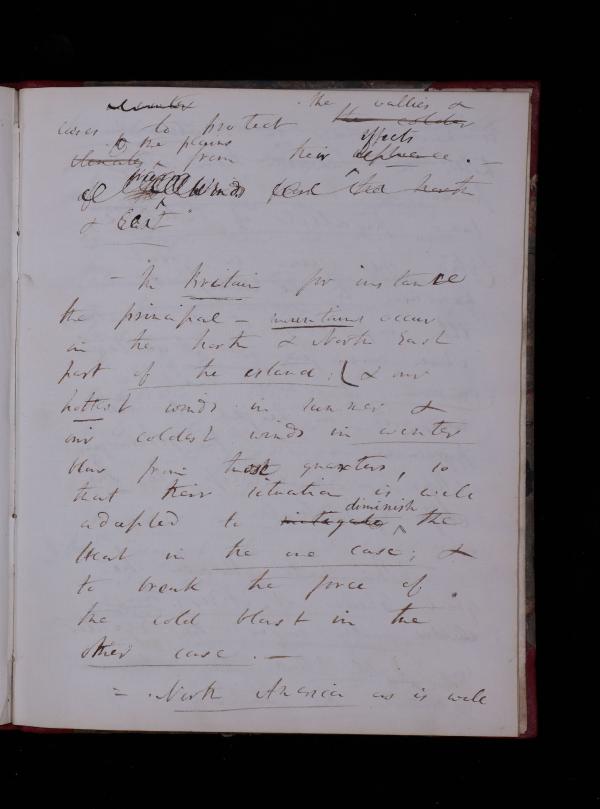 the vallies &
cases to protect the colder
climates to the plains from their effects influence. —
of winds from the North
& East
— In Britain for instance
the principal – mountains occur
in the North & North East
part of the island; & our
hottest winds in summer &
our coldest winds in winter
blow from those quarters, so
that their situation is well
adapted to mitigate diminish the
Heat in the one case; &
to break the force of
the cold blast in the
other case. —
= North America as is well